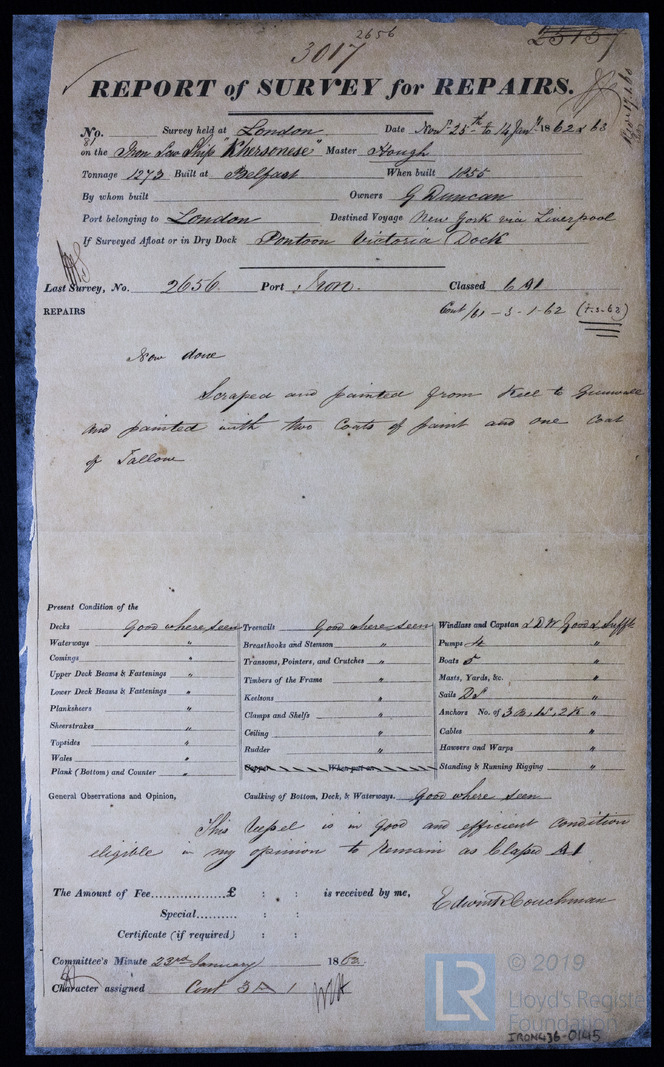 2656
3017
25157
REPORT of SURVEY for REPAIRS.
No. Survey held at London Date Novr 25th to 14 Jany 1862 & 63
on the Iron Scw Ship "Khersonese" Master Hough
Tonnage 1273 Built at Belfast When built 1855
By whom built Owners G Duncan
Port belonging to London Destined Voyage New York via Liverpool
If Surveyed Afloat or in Dry Dock Pontoon Victoria Dock
Last Survey, No. 2656 Port Iron. Classed 6 A1
REPAIRS Cont /61 - 3 - 1-62 (7.3.62)
Now done
Scraped and painted from Keel to Gunwale
and painted with two Coats of paint and one Coat
of Tallow
Present Condition of the
Decks Good where seen Treenails Good where seen Windlass and Capstan & D W Good & Sufft
Waterways " Breasthooks and Stemson " Pumps 4 "
Comings " Transoms, Pointers, and Crutches " Boats 5 "
Upper Deck Beams & Fastenings " Timbers of the Frame " Masts, Yards, &c. "
Lower Deck Beams & Fastenings " Keelsons " Sails "
Planksheers " Clamps and Shelfs " Anchors No. of 3 B, 1 S, 2 K "
Sheerstrakes " Ceiling " Cables "
Topsides " Rudder " Hawsers and Warps "
Wales " Copper When put on Standing & Running Rigging "
Plank (Bottom) and Counter "
General Observations and Opinion, Caulking of Bottom, Deck, & Waterways. Good where seen
This Vessel is in good and efficient condition
eligible in my opinion to remain as Classed A1
The Amount of Fee.................£ : : is received by me,
Special.......... : : Edwin Couchman
Certificate (if required) : :
Committee's Minute 23rd January 1863
Character assigned Cont 3 A 1
LR © 2019
Lloyd's Registe
Foundation
IRON436-0145